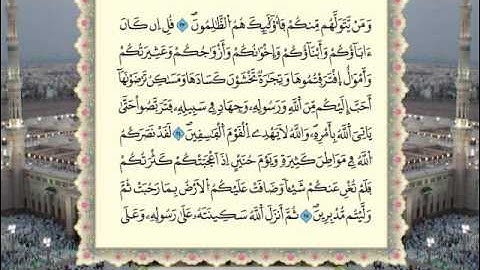 وَمَن يَتَوَلَّهُم مِّنكُمْ فَأُوْلَٰٓئِكَ هُمُ الظَّٰلِمُونَ ۖ ٢٣ قُلِ اِن كَانَ
ءَابَآؤُكُمْ وَأَبْنَآؤُكُمْ وَإِخْوَٰنُكُمْ وَأَزْوَٰجُكُمْ وَعَشِيرَتُكُمْ
وَأَمْوَٰلٌ اِ۪قْتَرَفْتُمُوهَا وَتِجَٰرَةٌ تَخْشَوْنَ كَسَادَهَا وَمَسَٰكِنُ تَرْضَوْنَهَآ
أَحَبَّ إِلَيْكُم مِّنَ اَللَّهِ وَرَسُولِهِۦ وَجِهَادٍ فِے سَبِيلِهِۦ فَتَرَبَّصُواْ حَتَّيٰ
يَاتِيَ اَللَّهُ بِأَمْرِهِۦ وَاللَّهُ لَا يَهْدِے اِ۬لْقَوْمَ اَ۬لْفَٰسِقِينَ ۖ ٢٤ لَقَدْ نَصَرَكُمُ
اُللَّهُ فِے مَوَاطِنَ كَثِيرَةٍ وَيَوْمَ حُنَيْنٍ اِذَ اَعْجَبَتْكُمْ كَثْرَتُكُمْ
فَلَمْ تُغْنِ عَنكُمْ شَيْـٔاً وَضَاقَتْ عَلَيْكُمُ اُلَارْضُ بِمَا رَحُبَتْ ثُمَّ
وَلَّيْتُم مُّدْبِرِينَ ۖ ٢٥ ثُمَّ أَنزَلَ اَللَّهُ سَكِينَتَهُۥ عَلَيٰ رَسُولِهِۦ وَعَلَى